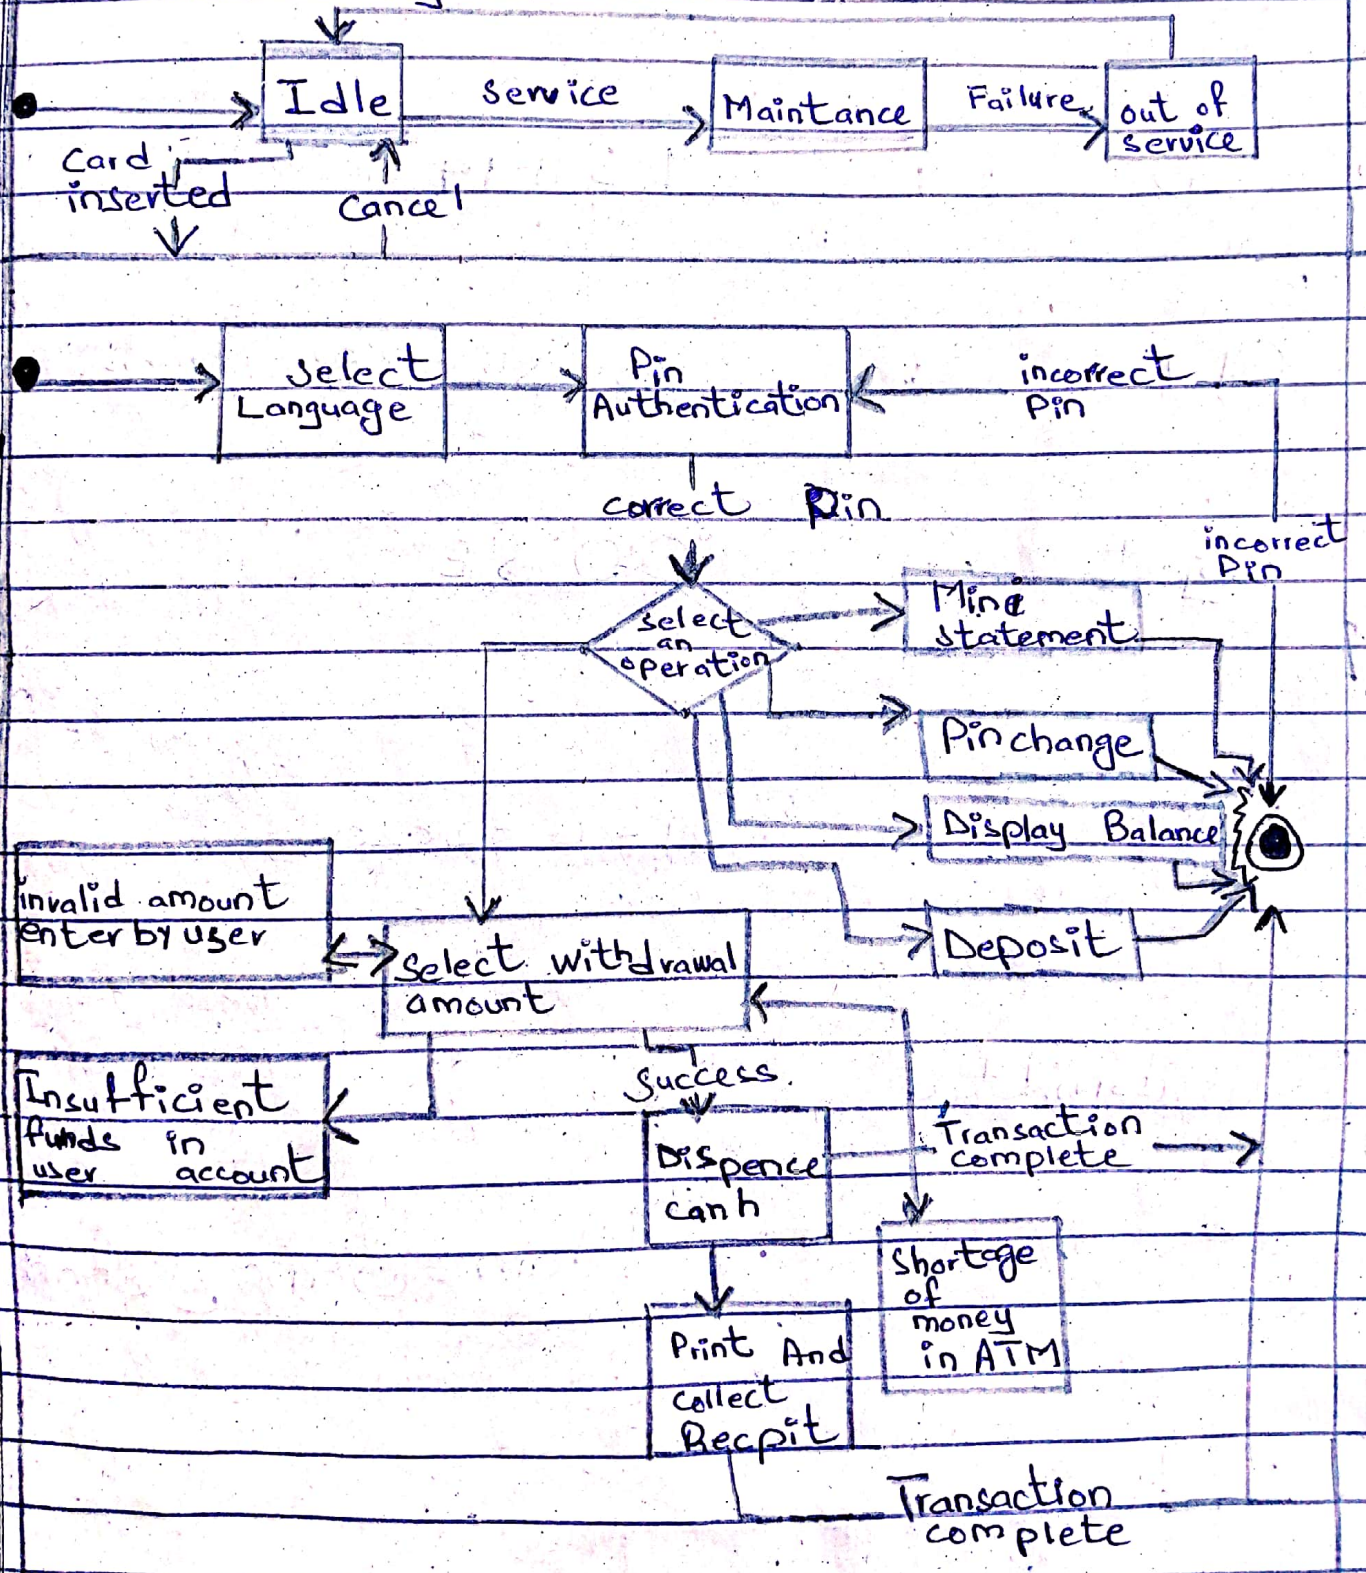 Idle
Service
Maintance
Failure
out of
service
Card
inserted
Cancel
Select
Language
Pin
Authentication
incorrect
Pin
correct Pin
incorrect
Pin
select
an
operation
Mini
statement
Pin change
Display Balance
Deposit
invalid amount
enter by user
Select withdrawal
amount
Insufficient
funds in
user account
Success.
Dispence
canh
Transaction
complete
Shortage
of
money
in ATM
Print And
collect
Recpit
Transaction
complete